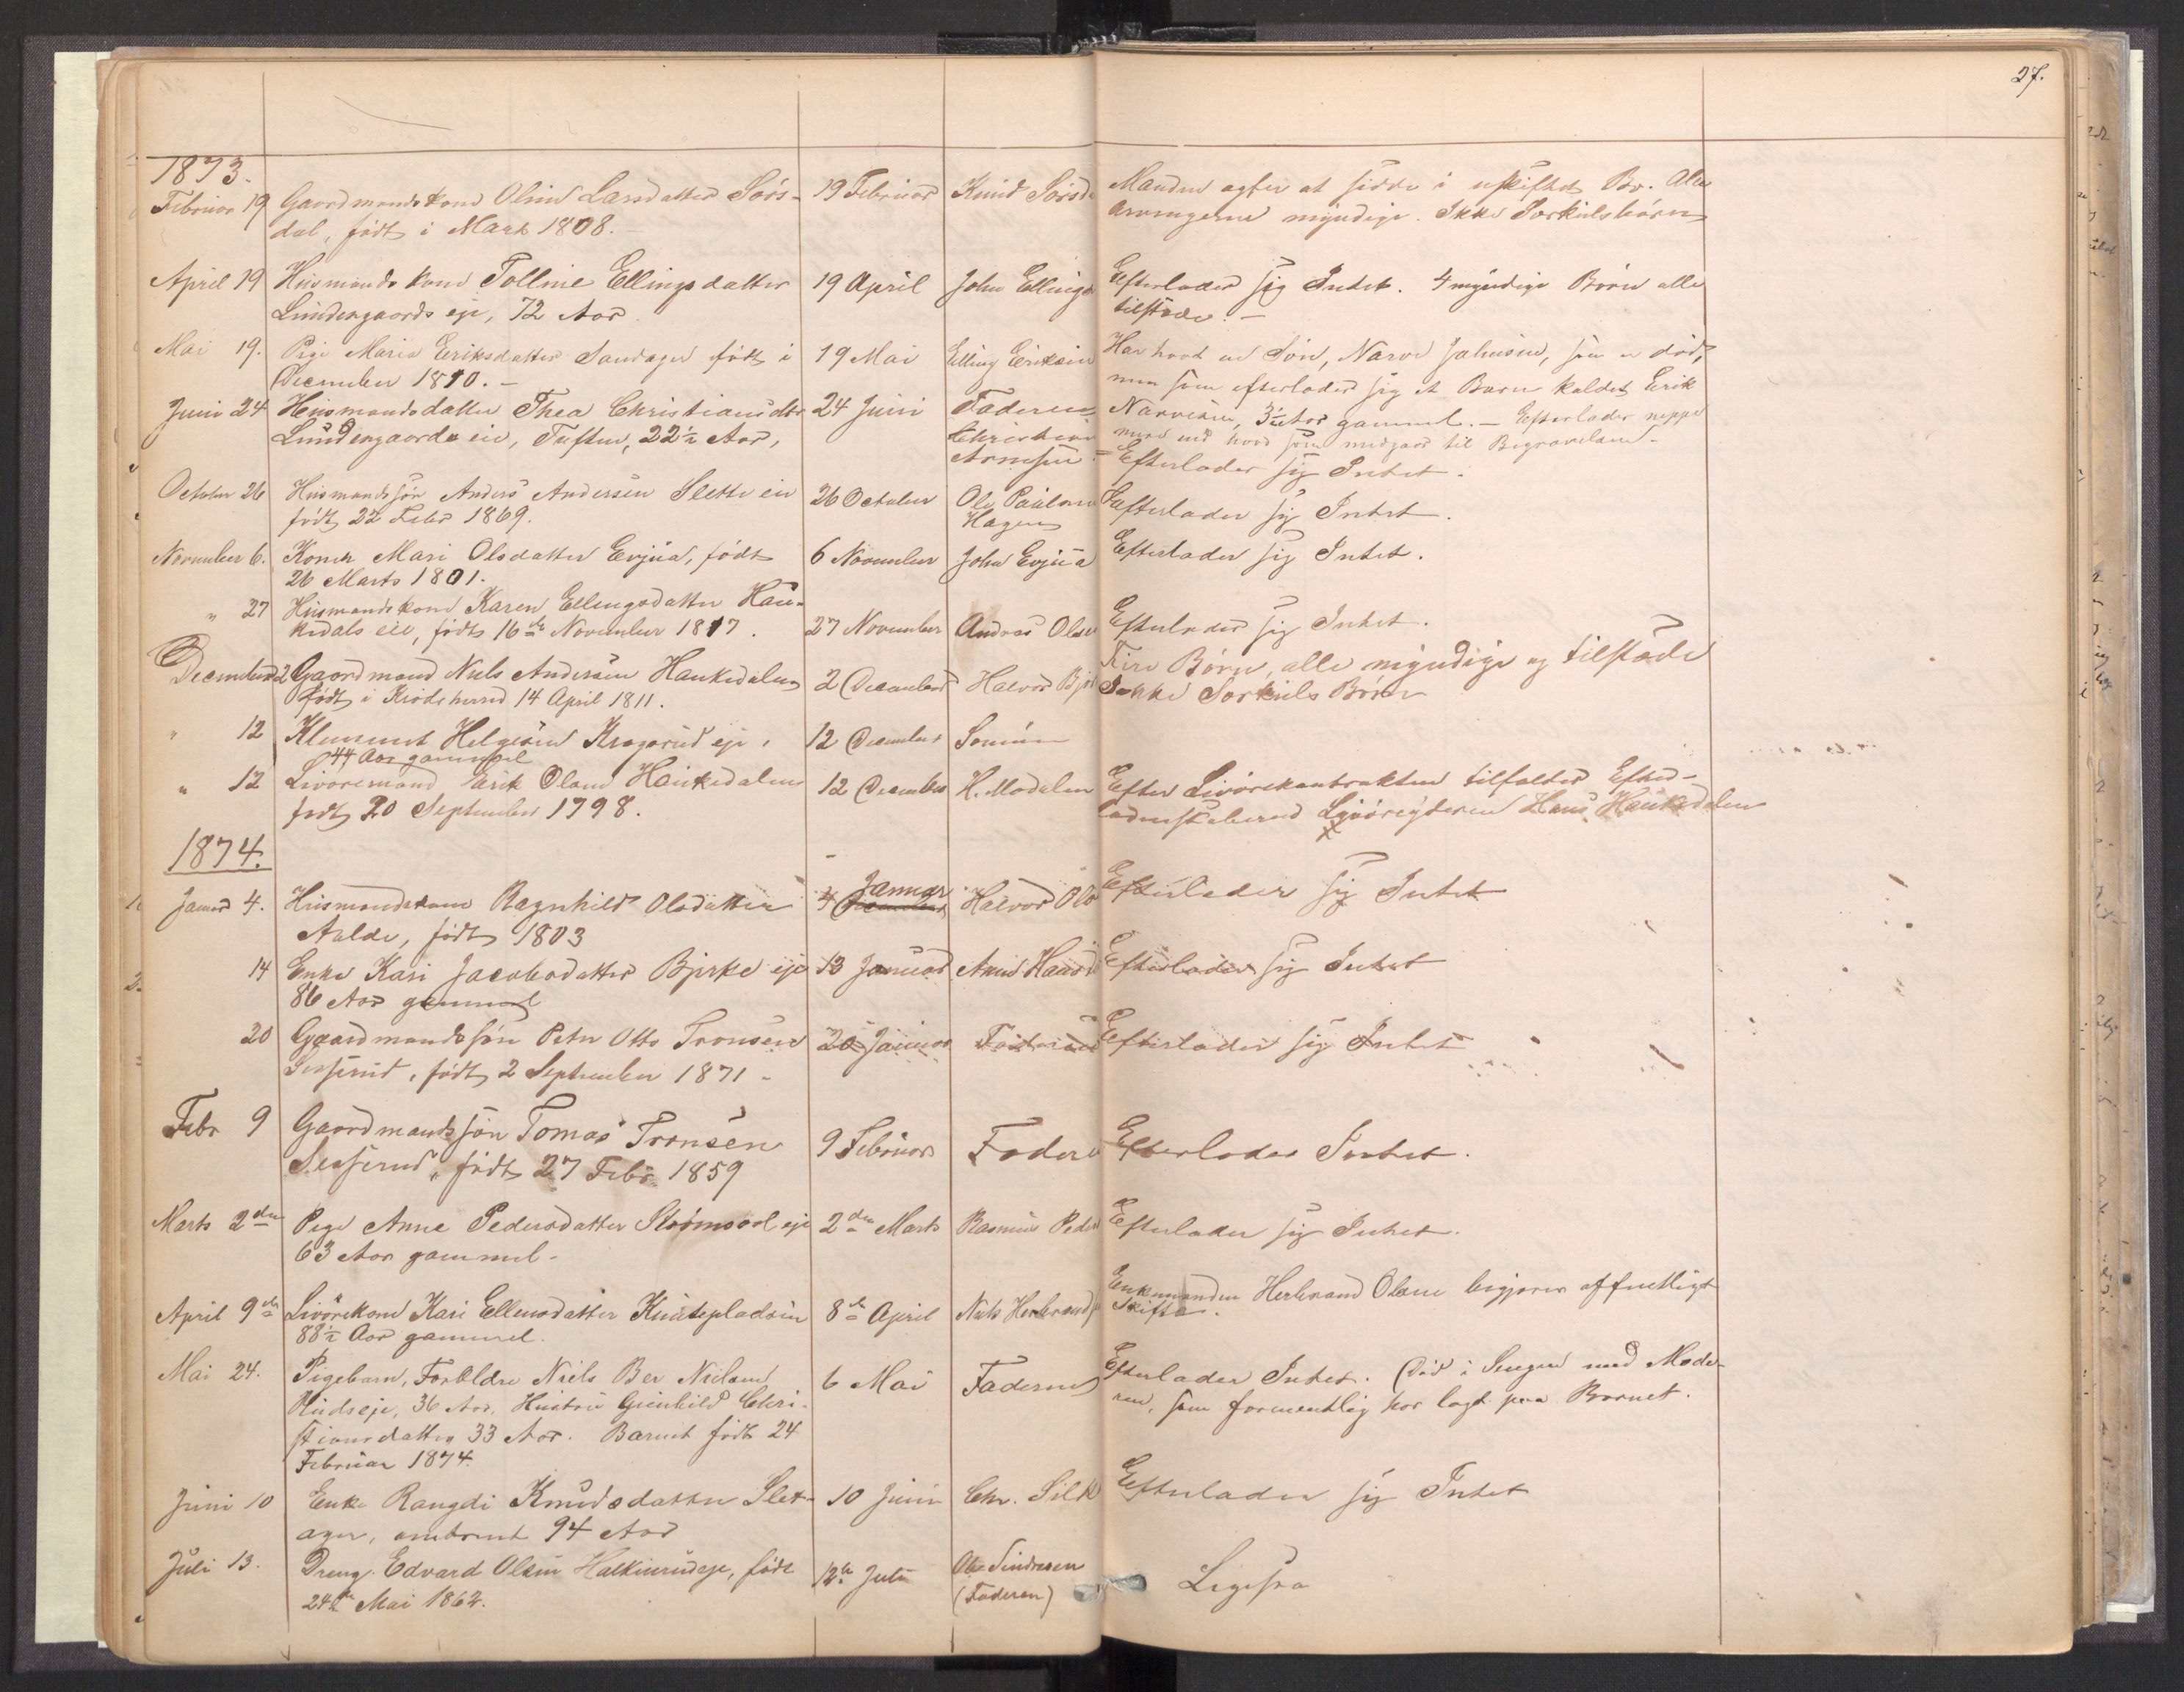 27.
1873.
Februar 19 Gaardmandskone Oline Larsdatter Sørs- 19 Februar Knud Sørsd Manden agter at sidde i uskiftet Bo. Alle
dal, født i Marts 1808. Arvingerne myndige. Ikke Særkulsbørn
April 19 Husmandskone Tolline Ellingsdatter 19 April John Ellings Efterlader sig Intet. 4 myndige Børn alle
Lundesgaards eje, 72 Aar. tilstæde. -
Mai 19. Pige Maria Eriksdatter Sandager født i 19 Mai Elling Eriksen Har havt en Søn, Narve Johnsen, som er død,
December 1810. - men som efterlader sig et Barn kaldet Erik
Juni 24 Husmandsdatter Thea Christiansdtr 24 Juni Faderen Narvesen, 3½ Aar gammel. - Efterlader neppe
Lundesgaards eie, Tuften, 22½ Aar, Christian mere end hvad som medgaar til Begravelsen -
Arnesen - Efterlader sig Intet.
October 26 Husmandssøn Anders Andersen Slette eie 26 October Ole Paulsen Efterlader sig Intet.
født 22 Febr 1869. Hagen
November 6. Konen Mari Olsdatter Evjua, født 6 November John Evjua Efterlader sig Intet.
26 Marts 1801.
" 27 Husmandskone Karen Ellingsdatter Hau- 27 November Andras Olse Efterlader sig Intet.
kedals eie, født 16de November 1817.
December 2 Gaardmand Niels Andersen Haukedalen 2 December Halvor Bj Fire Børn, alle myndige og tilstæde
født i Krødsherred 14 April 1811. Ikke Særkuls Børn
" 12 Klemmet Helgesen Kragerud eje, 12 December Sønnen
44 Aar gammel
" 12 Livøremand Erik Olsen Haukedalen 12 December H. Modalen Efter Livørekontrakten tilfalder Efter-
født 20 September 1798. ladenskaberne Livøreyderen Hans Haukedalen
1874.
Januar 4. Husmandskone Ragnhild Olsdatter 4 Januar Halvor Ols Efterlader sig Intet
Aalde, født 1803
14 Enke Kari Jacobsdatter Bjerke eje 13 Januar Efterlader sig Intet
86 Aar gammel
20 Gaardmandssøn Peter Otto Tronsen 20 Januar Faderen Efterlader sig Intet
født 2 September 1871 -
Febr 9 Gaardmandssøn Tomas Tronsen 9 Februar Fadere Efterlader Intet.
født 27 Febr 1859
Marts 2den Pige Anne Pedersdatter Strømsod eje 2den Marts Rasmus Peder Efterlader sig Intet.
63 Aar gammel -
April 9de Livørekone Kari Ellensdatter Knutepladsen 8de April Niels Herbrands Enkemanden Herbrand Olsen begjærer offentligt
88½ Aar gammel. Skifte.
Mai 24. Pigebarn, Forældre Niels Ber Nielsen 6 Mai Faderen Efterlader Intet. Død i Sengen med Mode-
Rudseje, 36 Aar, Hustru Gunhild Chri- ren, som formentlig har lagt paa Barnet.
stiansdatter 33 Aar. Barnet født 24
Februar 1874.
Juni 10 Enke Rangdi Knudsdatter Slet- 10 Juni Chr. Silk Efterlader sig Intet
ager, omtrent 94 Aar
Juli 13. Dreng Edvard Olsen Halkinrudeje, født 12te Juli Ole Sindresen Ligesaa
24de Mai 1862. (Faderen)